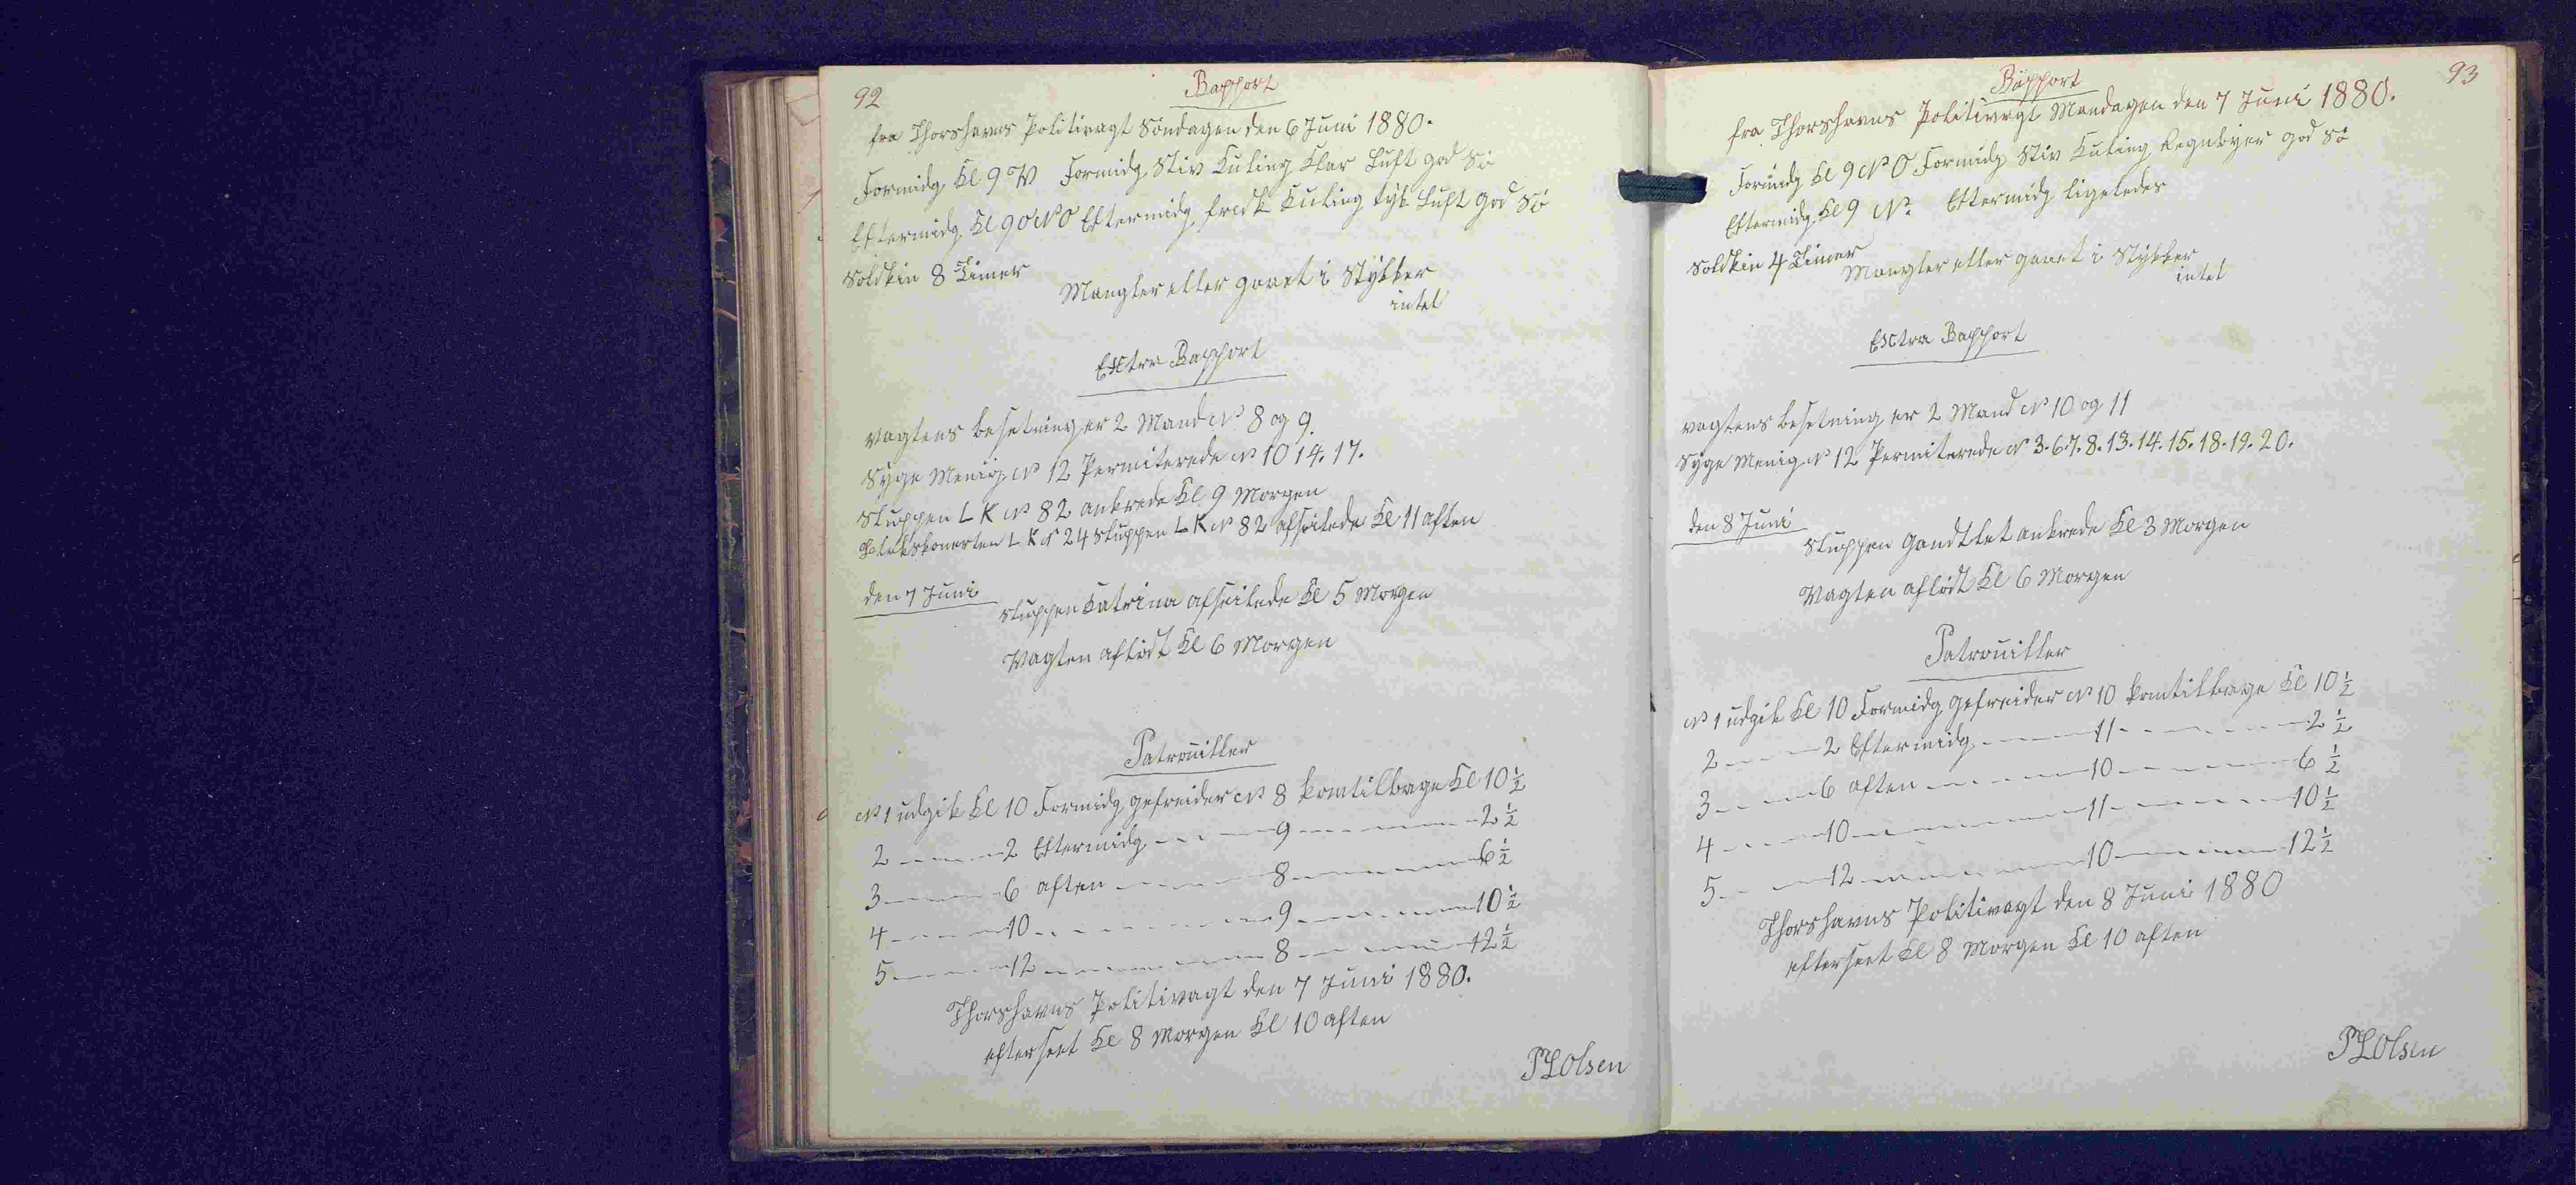 92
Rapport
fra Thorshavns Politivagt Søndagen den 6 Juni 1880.
Formidg Kl 9 V Formidg Stiv Kuling Klar Luft god Sö
Eftermidg Kl 9 ONO Eftermidg frisk Kuling tyk Luft god Sö
Solskin 8 Timer
Mangler eller gaaet i Stykker
intet
Exttra Rapport
vagtens besetning er 2 Mand No 8 og 9.
Syge Menig No 12 Permiterede No 10 14. 17.
Sluppen L K No 82 ankrede Kl 9 Morgen
L K No 24 Sluppen L K No 82 afseilede Kl 11 aften
den 7 Juni
Sluppen Katrina afseilede Kl 5 Morgen
Vagten aflöst Kl 6 Morgen
Patrouiller
No 1 udgik Kl 10 Formidg gefreider No 8 komtilbage Kl 10 1/2
2 - - - - 2 Eftermidg - - - - 9 - - - - 2 1/2
3 - - - - 6 aften - - - - 8 - - - - 6 1/2
4 - - - - 10 - - - - 9 - - - - 10 1/2
5 - - - - 12 - - - - 8 - - - - 12 1/2
Thorshavns Politivagt den 7 Juni 1880.
efterseet Kl 8 Morgen Kl 10 aften
PLOlsen
93
Rapport
fra Thorshavns Politivagt Mandagen den 7 Juni 1880.
Formidg Kl 9 NO Formidg Stiv Kuling Regnbyer god Sö
Eftermidg Kl 9 N. Eftermidg ligeledes
Solskin 4 Timer
Mangler eller gaaet i Stykker
intet
Exttra Rapport
vagtens besetning er 2 Mand No 10 og 11
Syge Menig No 12 Permiterede No 3. 6. 7. 8. 13. 14. 15. 18. 19. 20.
den 8 Juni
Sluppen Gandtlet ankrede Kl 3 Morgen
Vagten aflöst Kl 6 Morgen
Patrouiller
No 1 udgik Kl 10 Formidg gefreider No 10 komtilbage Kl 10 1/2
2 - - - - 2 Eftermidg - - - - 11 - - - - 2 1/2
3 - - - - 6 aften - - - - 10 - - - - 6 1/2
4 - - - - 10 - - - - 11 - - - - 10 1/2
5 - - - - 12 - - - - 10 - - - - 12 1/2
Thorshavns Politivagt den 8 Juni 1880
efterseet Kl 8 Morgen Kl 10 aften
PLOlsen